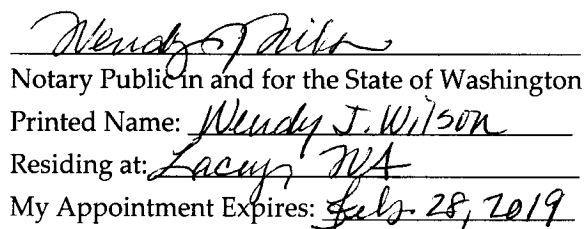 Wendy J. Wilson
Notary Public in and for the State of Washington
Printed Name: Wendy J. Wilson
Residing at: Lacey, WA
My Appointment Expires: Feb. 28, 2019